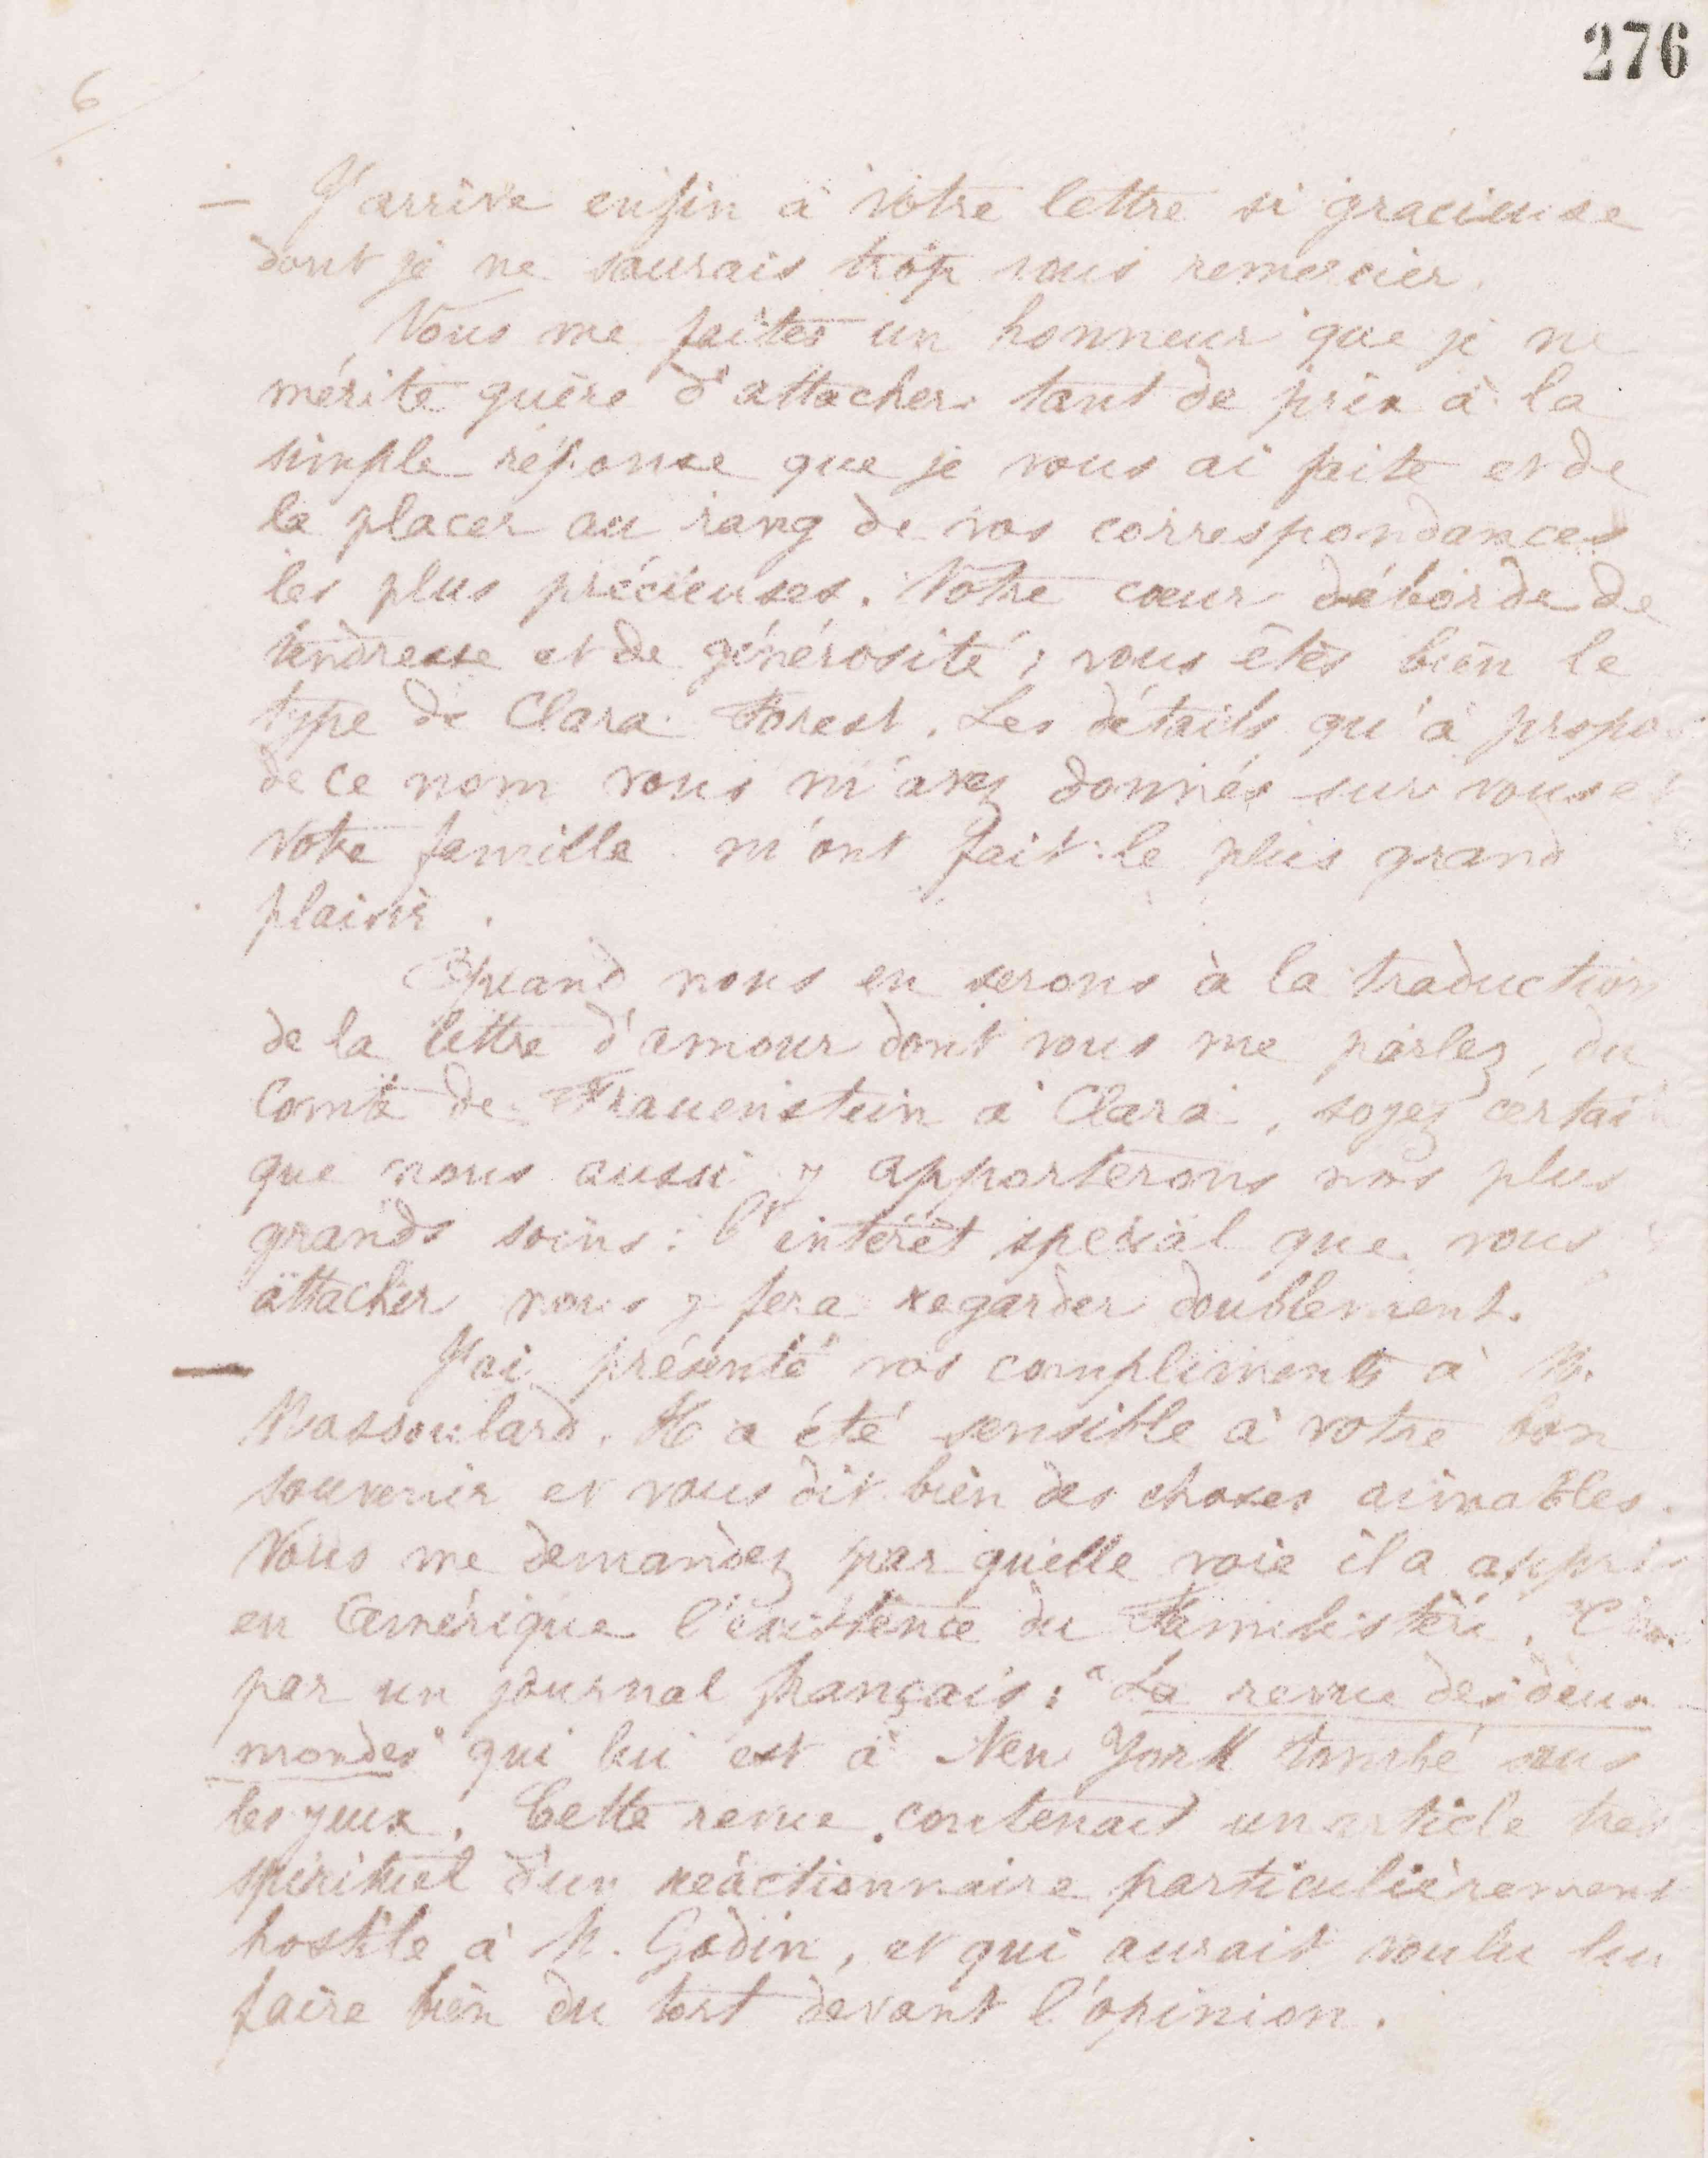 276
6
— J'arrive enfin à votre lettre si gracieuse
dont je ne saurais trop vous remercier.
Vous me faites un honneur que je ne
mérite guère d'attacher tant de prix à la
simple réponse que je vous ai faite et de
la placer au rang de vos correspondances
les plus précieuses. Votre cœur déborde de
tendresse et de générosité ; vous êtes bien le
type de Clara Forest. Les détails qu'à propos
de ce nom vous m'avez donnés sur vous et
votre famille m'ont fait le plus grand
plaisir.
Quand nous en serons à la traduction
de la lettre d'amour dont vous me parlez, du
Comte de Frauenstein à Clara, soyez certai
que nous aussi y apporterons nos plus
grands soins : l'intérêt spécial que vous y
attachez nous y fera regarder doublement.
— J'ai présenté vos compliments à M.
Massoulard. Il a été sensible à votre bon
souvenir et vous dit bien des choses aimables.
Vous me demandez par quelle voie il a appris
en Amérique l'existence du Familistère. C'est
par un journal français : "La revue des deux
mondes" qui lui est à New York tombé sous
les yeux. Cette revue contenait un article très
spirituel d'un réactionnaire particulièrement
hostile à M. Godin, et qui aurait voulu lui
faire bien du tort devant l'opinion.